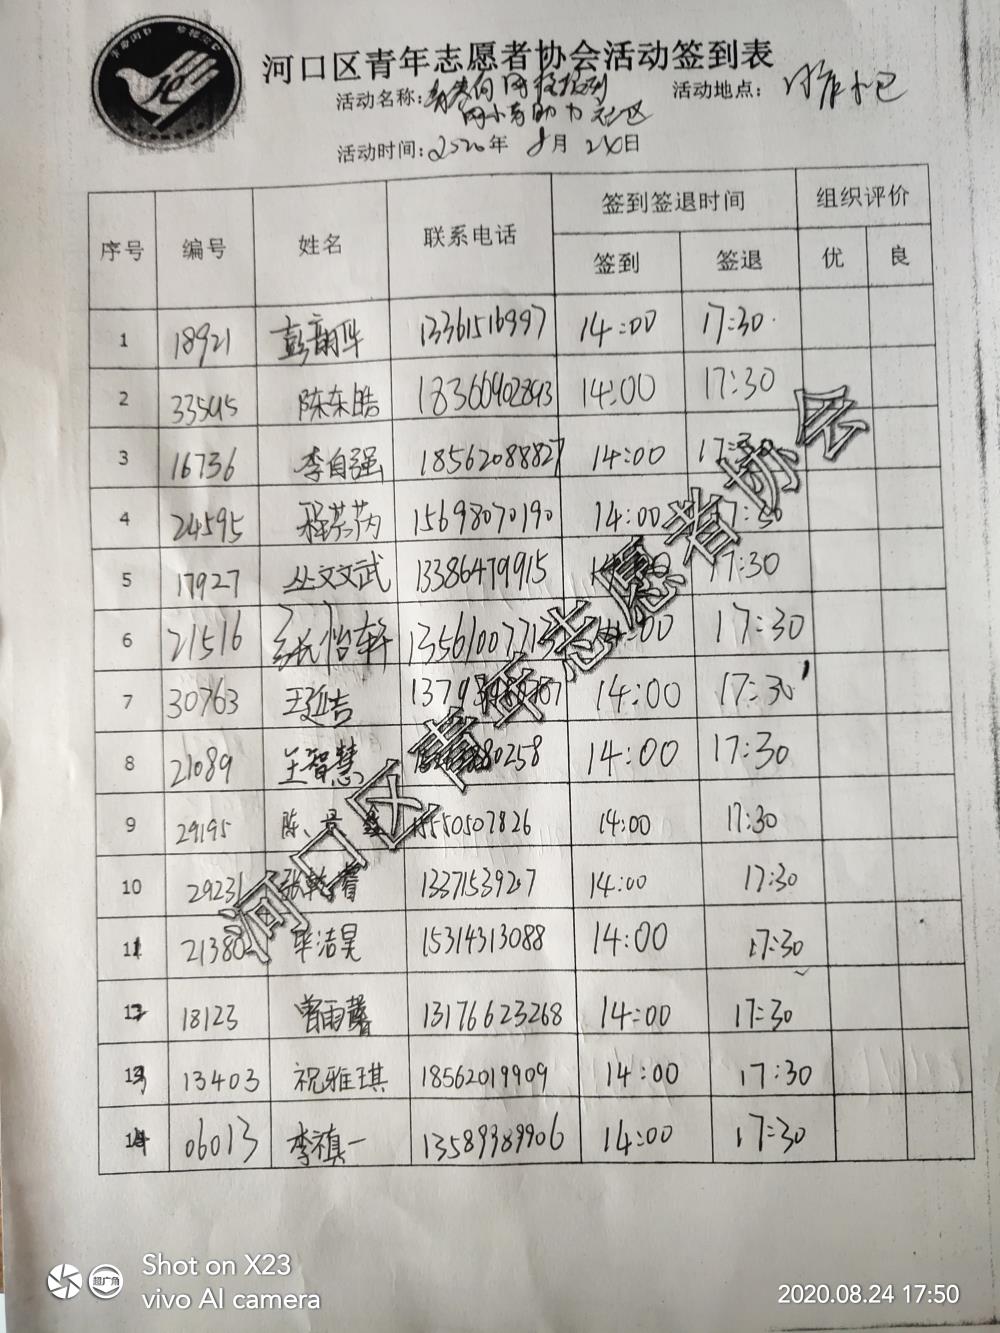 河口区青年志愿者协会活动签到表
活动名称:
活动地点:
网小青助力社区
活动时间:2020年 8月 24日
序号 编号 姓名 联系电话 签到签退时间 组织评价
签到 签退 优 良
1 18921 13361516997 14:00 17:30
2 陈东皓 18366902893 14:00 17:30
3 16736 李自强 18562088827 14:00 17:30
4 24595 程芬芮 15698070190 14:00 17:30
5 17927 丛文武 13386479915 14:00 17:30
6 21516 张怡轩 14:00 17:30
7 30763 王延吉 14:00 17:30
8 21089 王智慧 14:00 17:30
9 29195 15550507826 14:00 17:30
10 29231 14:00 17:30
11 21380 毕洁昊 15314313088 14:00 17:30
12 18123 曾雨馨 13176623268 14:00 17:30
13 13403 祝雅琪 18562019909 14:00 17:30
14 06013 李禛一 13589989906 14:00 17:30
河口区青年志愿者协会
Shot on X23
超广角
vivo AI camera
2020.08.24 17:50